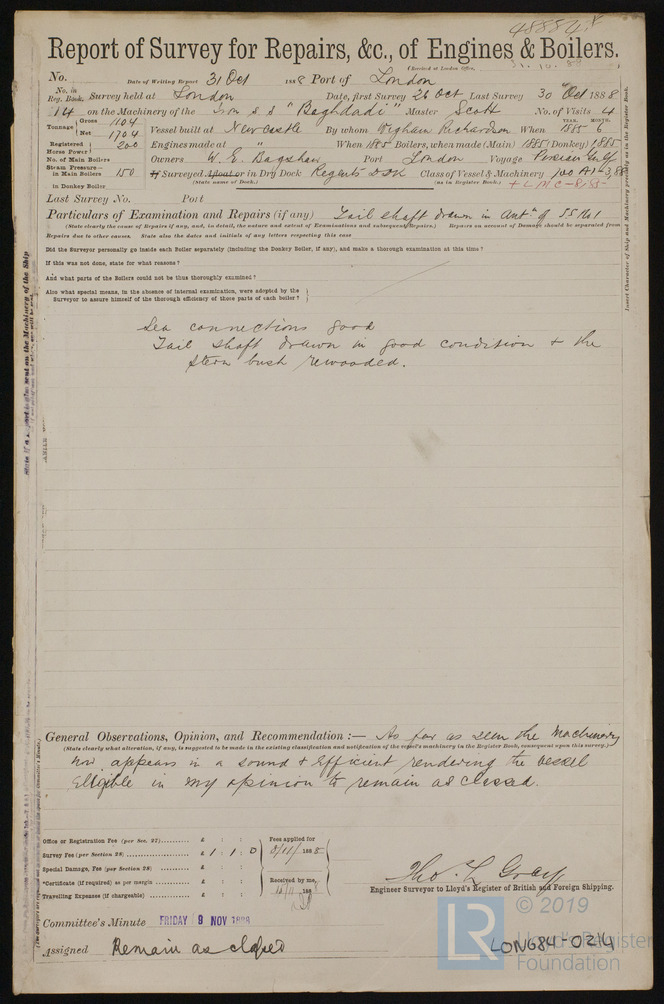 48884
Report of Survey for Repairs, &c., of Engines & Boilers.
(Received at London Office,
No. Date of Writing Report 31 Oct 1888 Port of London
No. in Reg. Book. Survey held at London Date, first Survey 26 Oct Last Survey 30 Oct 1888
14 on the Machinery of the S S "Baghdadi" Master Scott No. of Visits 4
Tonnage Gross Net 1704 Vessel built at Newcastle By whom Wigham Richardson When 1885 YEAR. MONTH. 6
Registered Horse Power 200 Engines made at " When 1885 Boilers, when made (Main) 1885 (Donkey) 1885
No. of Main Boilers Owners W. E. Port London Voyage Persian Gulf
Steam Pressure— in Main Boilers 150 If Surveyed Afloat or in Dry Dock Regents Dk Class of Vessel & Machinery 100 A1
(State name of Dock.) (as in Register Book.) + L M C - 85
in Donkey Boiler
Last Survey No. Port
Particulars of Examination and Repairs (if any) Tail shaft drawn in
(State clearly the cause of Repairs if any, and, in detail, the nature and extent of Examinations and subsequent Repairs.) Repairs on account of Damage should be separated from
Repairs due to other causes. State also the dates and initials of any letters respecting this case
Did the Surveyor personally go inside each Boiler separately (including the Donkey Boiler, if any), and make a thorough examination at this time?
If this was not done, state for what reasons?
And what parts of the Boilers could not be thus thoroughly examined?
Also what special means, in the absence of internal examination, were adopted by the
Surveyor to assure himself of the thorough efficiency of those parts of each boiler?
Sea connections good
Tail shaft drawn in good condition & the
stern bush rewooded.
General Observations, Opinion, and Recommendation:— As far as seen the Machinery
(State clearly what alteration, if any, is suggested to be made in the existing classification and notification of the vessel's machinery in the Register Book, consequent upon this survey.)
now appears in a sound & efficient rendering the vessel
Eligible in my opinion to remain as classed.
Office or Registration Fee (per Sec. 27) £ : :
Survey Fee (per Section 28) £ 1 : 1 : 0
Special Damage, Fee (per Section 28) £ : :
*Certificate (if required) as per margin £ : :
Travelling Expenses (if chargeable) £ : :
Fees applied for
188
Received by me,
188
Engineer Surveyor to Lloyd's Register of British and Foreign Shipping.
Committee's Minute FRIDAY 9 NOV 1888
Assigned Remain as classed
LON684-0214
Insert Character of Ship and Machinery precisely as in the Register Book.
LR
© 2019
Lloyd's Register
Foundation